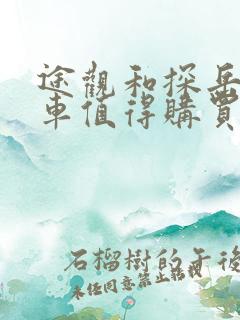 途觀和探岳
車值得購買
石榴樹的午後
未经同意禁止转载